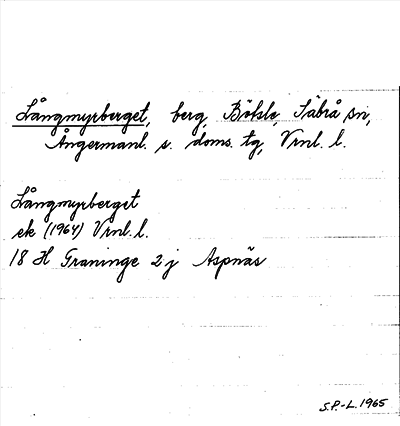 Långmyrberget, berg, Bölsle, Säbrå sn,
Ångermanl. s. doms. tg, Vrnl. l.
Långmyrberget
ek (1964) Vrnl. l.
18 H Graninge 2 j Aspnäs
S.P.-L. 1965